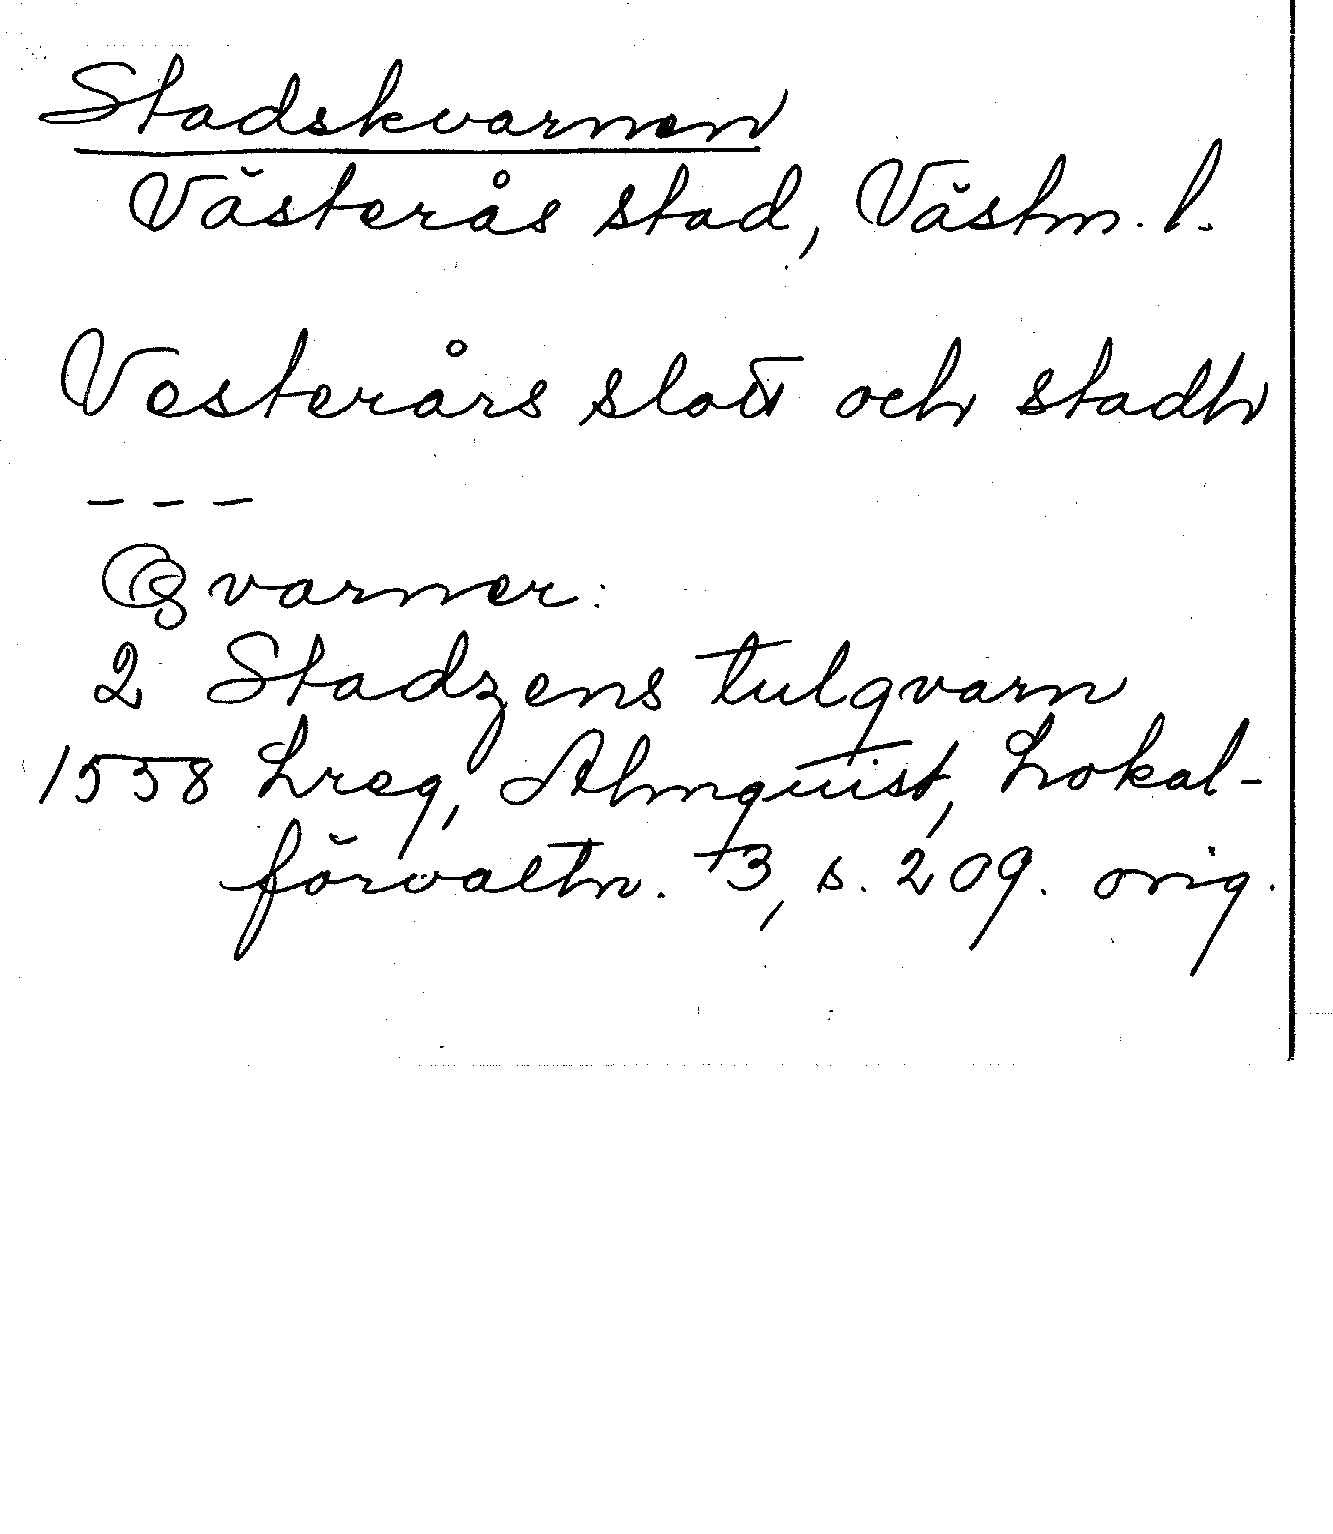 Stadskvarnen
Västerås stad, Västm. l.
Vesterårs slott och stadh
---
Qvarner:
2 Stadzens tulqvarn
1558 Lreg, Almquist, Lokal-
förvaltn. 3, s. 209. orig.